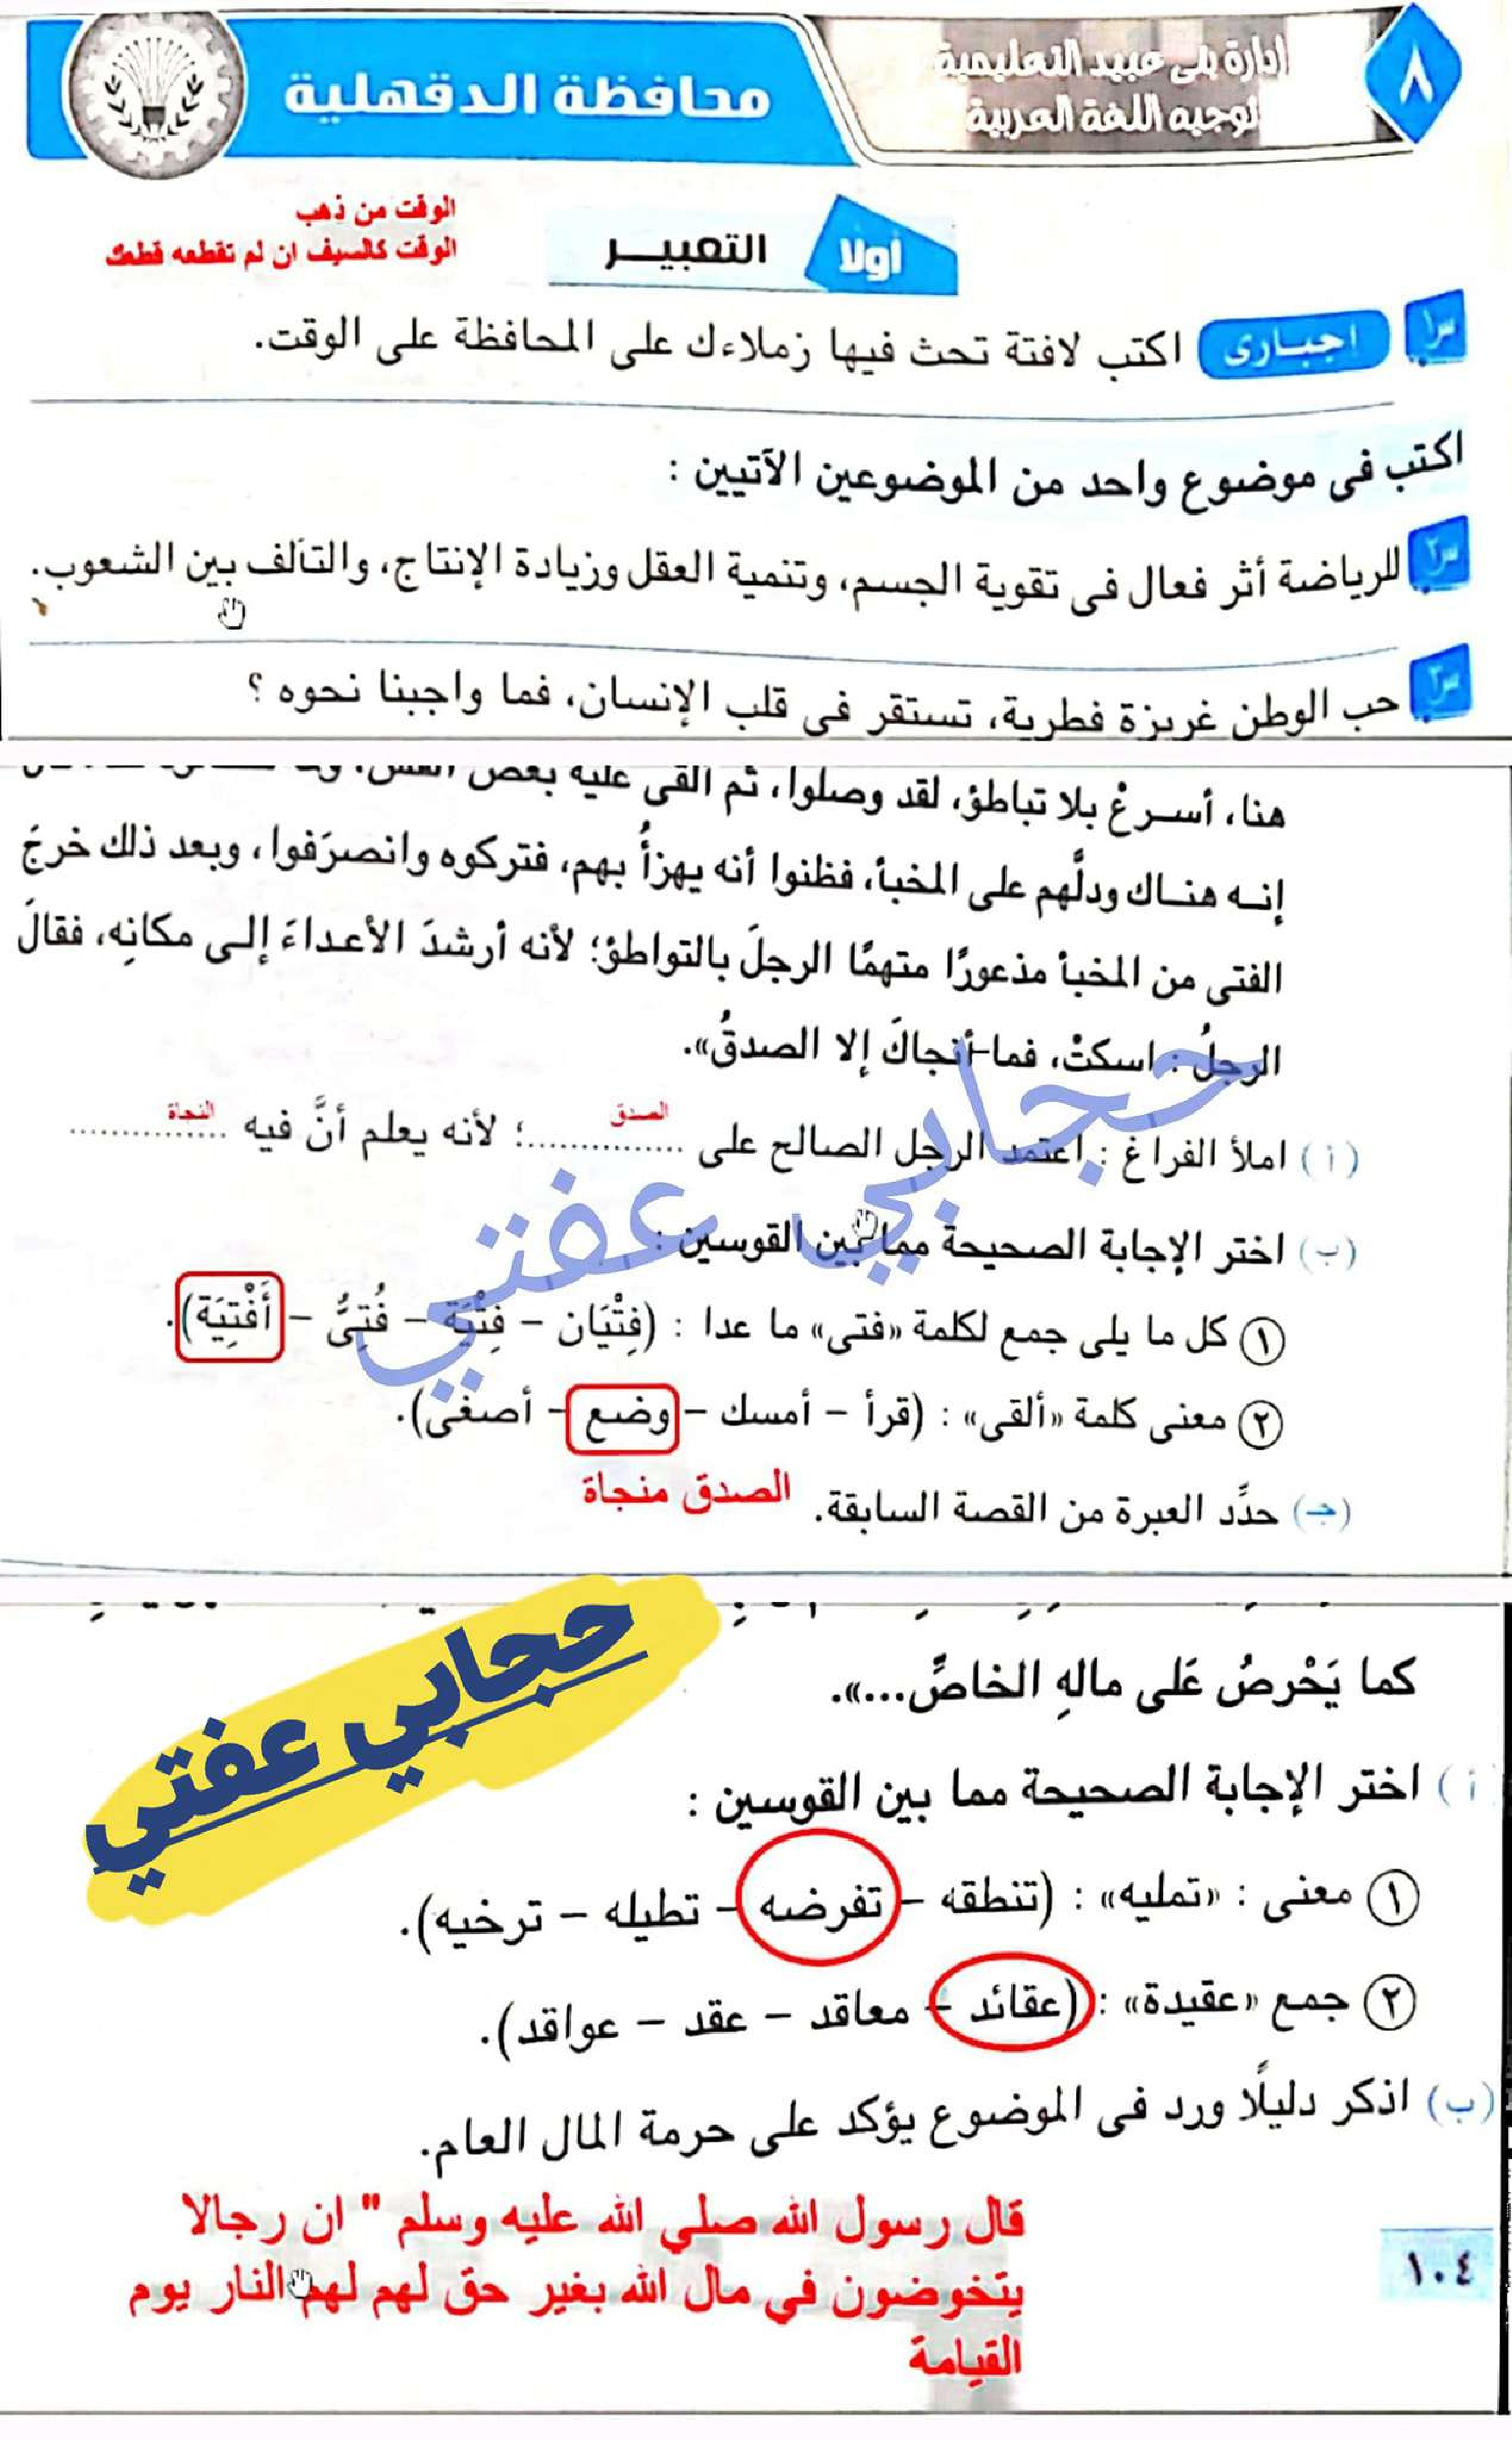 ٨
إدارة بنى عبيد التعليمية
توجيه اللغة العربية
محافظة الدقهلية
أولا
التعبير
الوقت من ذهب
الوقت كالسيف ان لم تقطعه قطعك
س١ إجبارى اكتب لافتة تحث فيها زملاءك على المحافظة على الوقت.
اكتب فى موضوع واحد من الموضوعين الآتيين :
س٢ للرياضة أثر فعال فى تقوية الجسم، وتنمية العقل وزيادة الإنتاج، والتآلف بين الشعوب.
س٣ حب الوطن غريزة فطرية، تستقر فى قلب الإنسان، فما واجبنا نحوه ؟
هنا، أسرعْ بلا تباطؤ، لقد وصلوا، ثم ألقى عليه بعض
إنه هناك ودلَّهم على المخبأ، فظنوا أنه يهزأُ بهم، فتركوه وانصرَفوا، وبعد ذلك خرجَ
الفتى من المخبأ مذعورًا متهمًا الرجلَ بالتواطؤ؛ لأنه أرشدَ الأعداءَ إلى مكانِه، فقالَ
الرجلُ : اسكتْ، فما أنجاكَ إلا الصدقُ».
(أ) املأ الفراغ : اعتمد الرجل الصالح على الصدق ..............؛ لأنه يعلم أنَّ فيه النجاة ..............
(ب) اختر الإجابة الصحيحة مما بين القوسين :
١ كل ما يلى جمع لكلمة «فتى» ما عدا : (فِتْيَان – فِتْيَة – فُتِىُّ – أَفْتِيَة).
٢ معنى كلمة «ألقى» : (قرأ – أمسك – وضع – أصغى).
(جـ) حدِّد العبرة من القصة السابقة. الصدق منجاة
حجابي عفتي
حجابي عفتي
كما يَحْرصُ عَلى مالهِ الخاصِّ...».
(أ) اختر الإجابة الصحيحة مما بين القوسين :
١ معنى : «تمليه» : (تنطقه – تفرضه – تطيله – ترخيه).
٢ جمع «عقيدة» : (عقائد – معاقد – عقد – عواقد).
(ب) اذكر دليلًا ورد فى الموضوع يؤكد على حرمة المال العام.
قال رسول الله صلي الله عليه وسلم " ان رجالا
يتخوضون في مال الله بغير حق لهم لهم النار يوم
القيامة
١٠٤